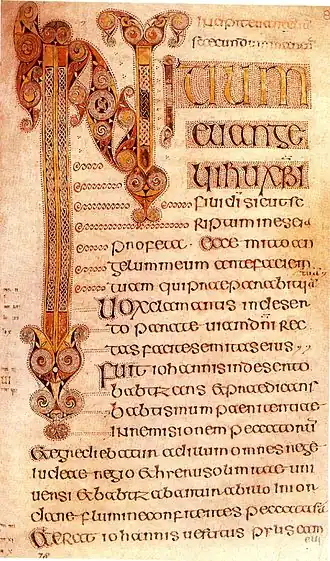 INitium
euange
lii ihu xpi
fili di sicut sc
riptum in esaia
profeta Ecce mitto an
gelum meum ante faciem
tuam qui praeparabit uiam
Uox clamantis in deser
to parate uiam dni rec
tas facite semitas eius
Fuit iohannis in deserto
babtizans & praedicans
babtismum paenitentiae
in remisionem peccatorum
& egrediebatur ad illum omnes
iudeae regio & hierusolimitae uni
uersi & babtizabantur ab illo in ior
dane flumine confitentes peccata sua
& erat iohannis uestitus pilis cam
eli